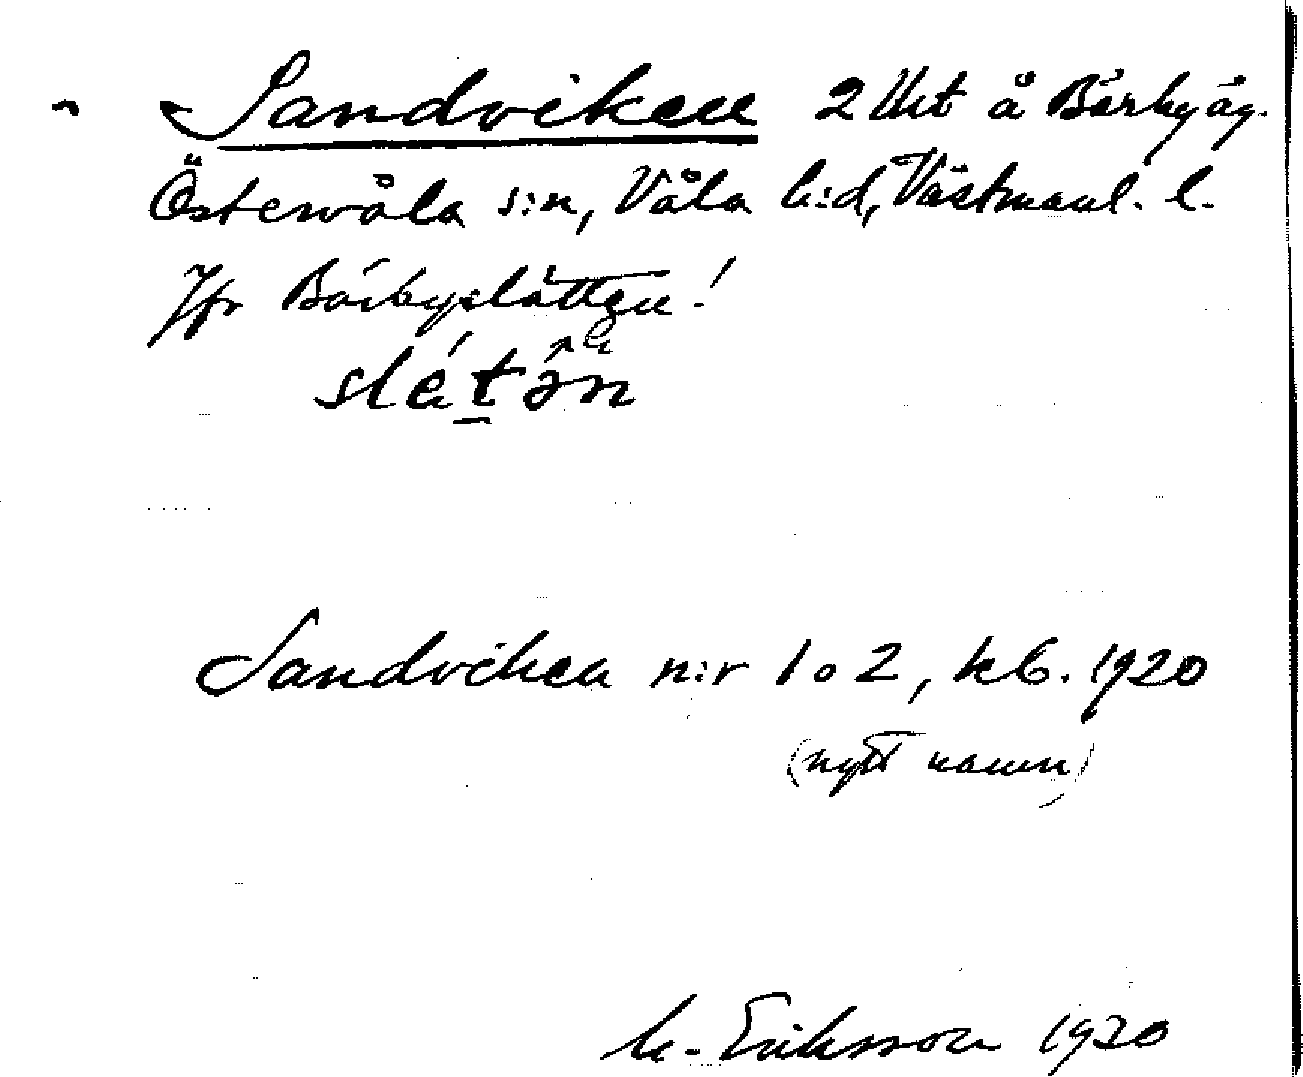 Sandviken 2 lht å Bärbyäg.
Östervåla s:n, Våla h:d, Västmanl. l.
Jfr Bärbyslätten!
slätən
Sandviken n:r 1 o 2, kb. 1920
(nytt namn)
M. Eriksson 1930